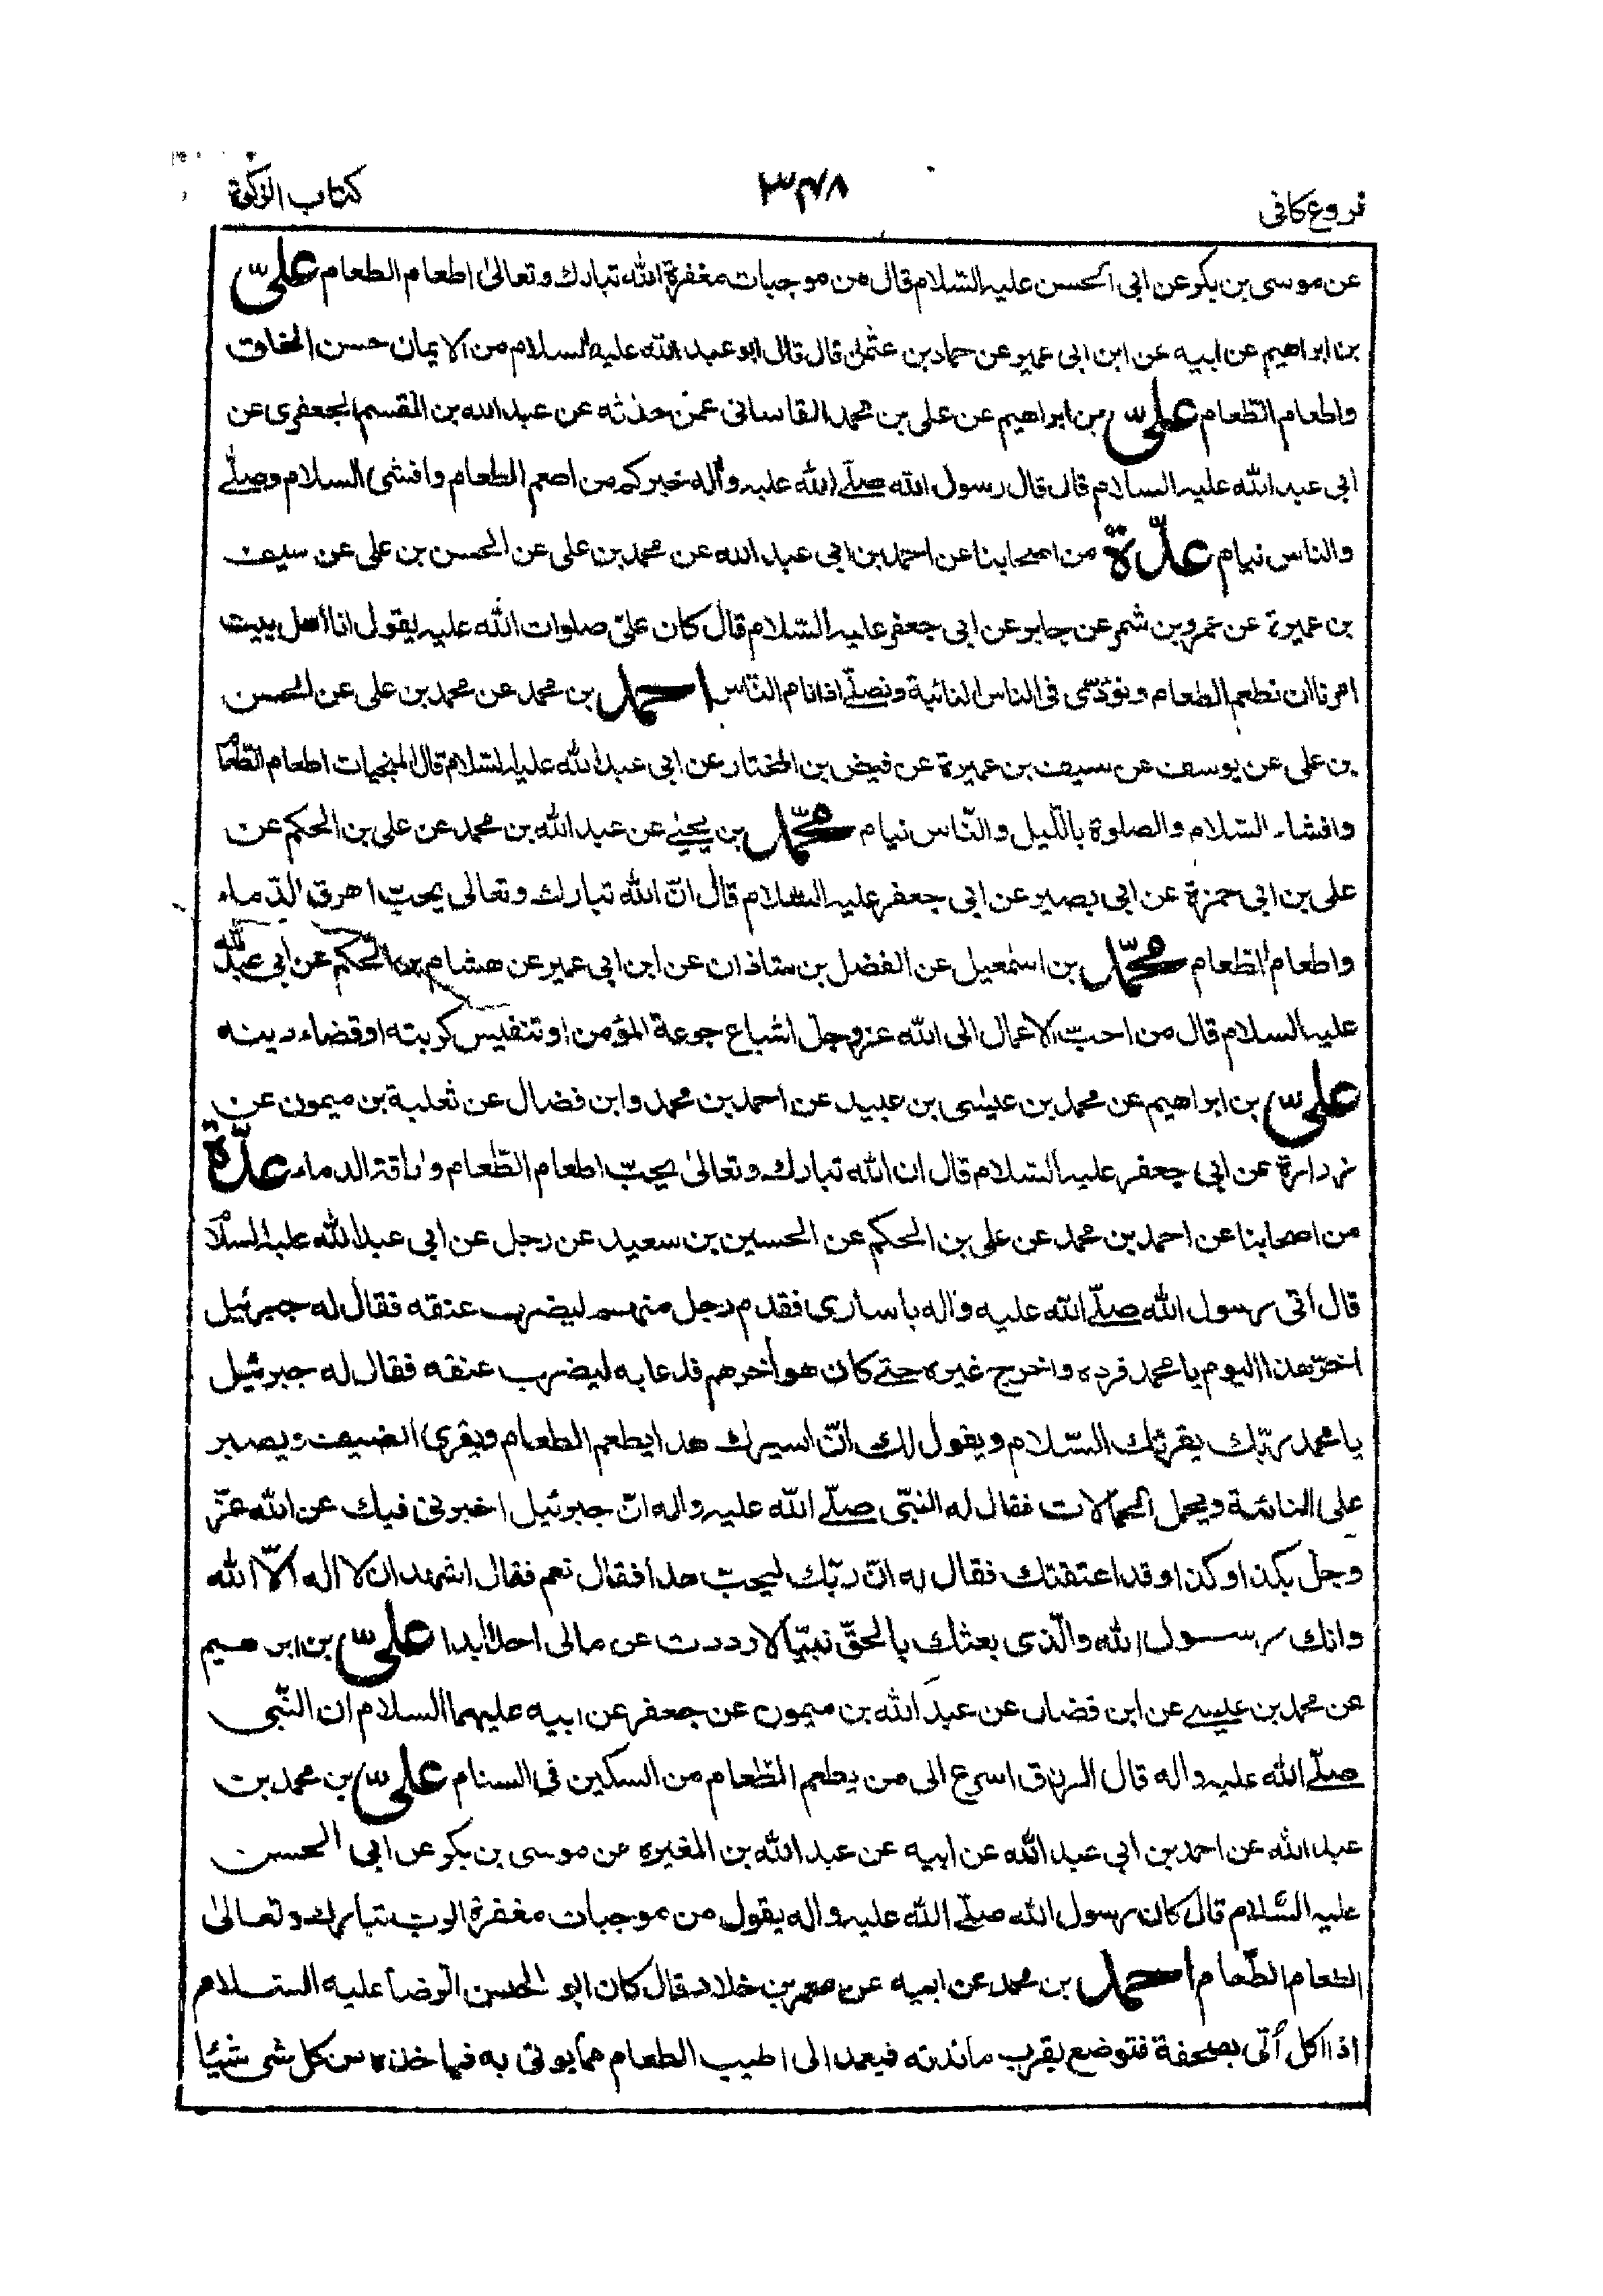 فروع کافی ۳۴۸ کتاب الزکوة
عن موسی بن بکر عن ابی الحسن علیه السّلام قال من موجبات مغفرة الله تبارك وتعالیٰ اطعام الطعام علیّ
بن ابراهیم عن ابیه عن ابن ابی عمیر عن حماد بن عثمٰن قال قال ابو عبد الله علیه السلام من الایمان حسن الخلق
واطعام الطّعام علیّ بن ابراهیم عن علی بن محمد القاسانی عمّن حدّثه عن عبد الله بن القسم الجعفری عن
ابی عبد الله علیه السلام قال قال رسول الله صلّے الله علیه وآله خیرکم من اطعم الطعام وافشی السلام وصلّے
والناس نیام عدّة من اصحابنا عن احمد بن ابی عبد الله عن محمد بن علی عن الحسن بن علی عن سیف
بن عمیرة عن عمرو بن شمر عن جابر عن ابی جعفر علیه السّلام قال کان علیّ صلوات الله علیه یقول انا اهل بیت
امرنا ان نطعم الطعام ونؤدّی فی الناس النائبة ونصلّے اذا نام النّاس احمد بن محمد عن محمد بن علی عن الحسن
بن علی عن یوسف عن سیف بن عمیرة عن فیض بن المختار عن ابی عبد الله علیه السّلام قال المنجیات اطعام الطّعام
وافشاء السّلام والصلوة باللّیل والنّاس نیام محمّد بن یحیٰے عن عبد الله بن محمد عن علی بن الحکم عن
علی بن ابی حمزة عن ابی بصیر عن ابی جعفر علیه السّلام قال انّ الله تبارك وتعالی یحبّ اهرق الدّماء
واطعام الطّعام محمّد بن اسمٰعیل عن الفضل بن شاذان عن ابن ابی عمیر عن هشام بن الحکم عن ابی عبد الله
علیه السلام قال من احبّ الاعمال الی الله عزوجل اشباع جوعة المؤمن او تنفیس کربته او قضاء دینه
علیّ بن ابراهیم عن محمد بن عیسٰی بن عبید عن احمد بن محمد وابن فضال عن ثعلبة بن میمون عن
زرارة عن ابی جعفر علیه السّلام قال ان الله تبارك وتعالیٰ یحبّ اطعام الطّعام واراقة الدماء عدّة
من اصحابنا عن احمد بن محمد عن علی بن الحکم عن الحسین بن سعید عن رجل عن ابی عبد الله علیه السلام
قال اتی رسول الله صلّے الله علیه وآله باساری فقدم رجل منهم لیضرب عنقه فقال له جبرئیل
اخّر هذا الیوم یا محمد فرده واخرج غیره حتے کان هو آخرهم فدعا به لیضرب عنقه فقال له جبرئیل
یا محمد ربّك یقرئك السّلام ویقول لك انّ اسیرك هذا یطعم الطعام ویقری الضیف ویصبر
علی النائبة ویحمل الحمالات فقال له النبّی صلّے الله علیه وآله انّ جبرئیل اخبرنی فیك عن الله عزّ
وجلّ بکذا وکذا وقد اعتقتك فقال له انّ ربّك لیحبّ هذا فقال نعم فقال اشهد ان لا اله الّا الله
وانك رسول الله والّذی بعثك بالحقّ نبیّا لا رددت عن مالی احدًا ابدا علیّ بن ابرهیم
عن محمد بن عیسے عن ابن فضال عن عبد الله بن میمون عن جعفر عن ابیه علیهما السلام ان النّبی
صلّے الله علیه واله قال الرزق اسرع الی من یطعم الطّعام من السکین فی السنام علیّ بن محمد بن
عبد الله عن احمد بن ابی عبد الله عن ابیه عن عبد الله بن المغیره عن موسی بن بکر عن ابی الحسن
علیه السّلام قال کان رسول الله صلّے الله علیه واله یقول من موجبات مغفرة الربّ تبارك وتعالیٰ
اطعام الطّعام احمد بن محمد عن ابیه عن معمر بن خلاد قال کان ابو الحسن الرّضا علیه السلام
اذا اکل أتی بصحفة فتوضع بقرب مائدته فیعمد الی اطیب الطعام ممّا یوتی به فیاخذ من کل شی شیئا